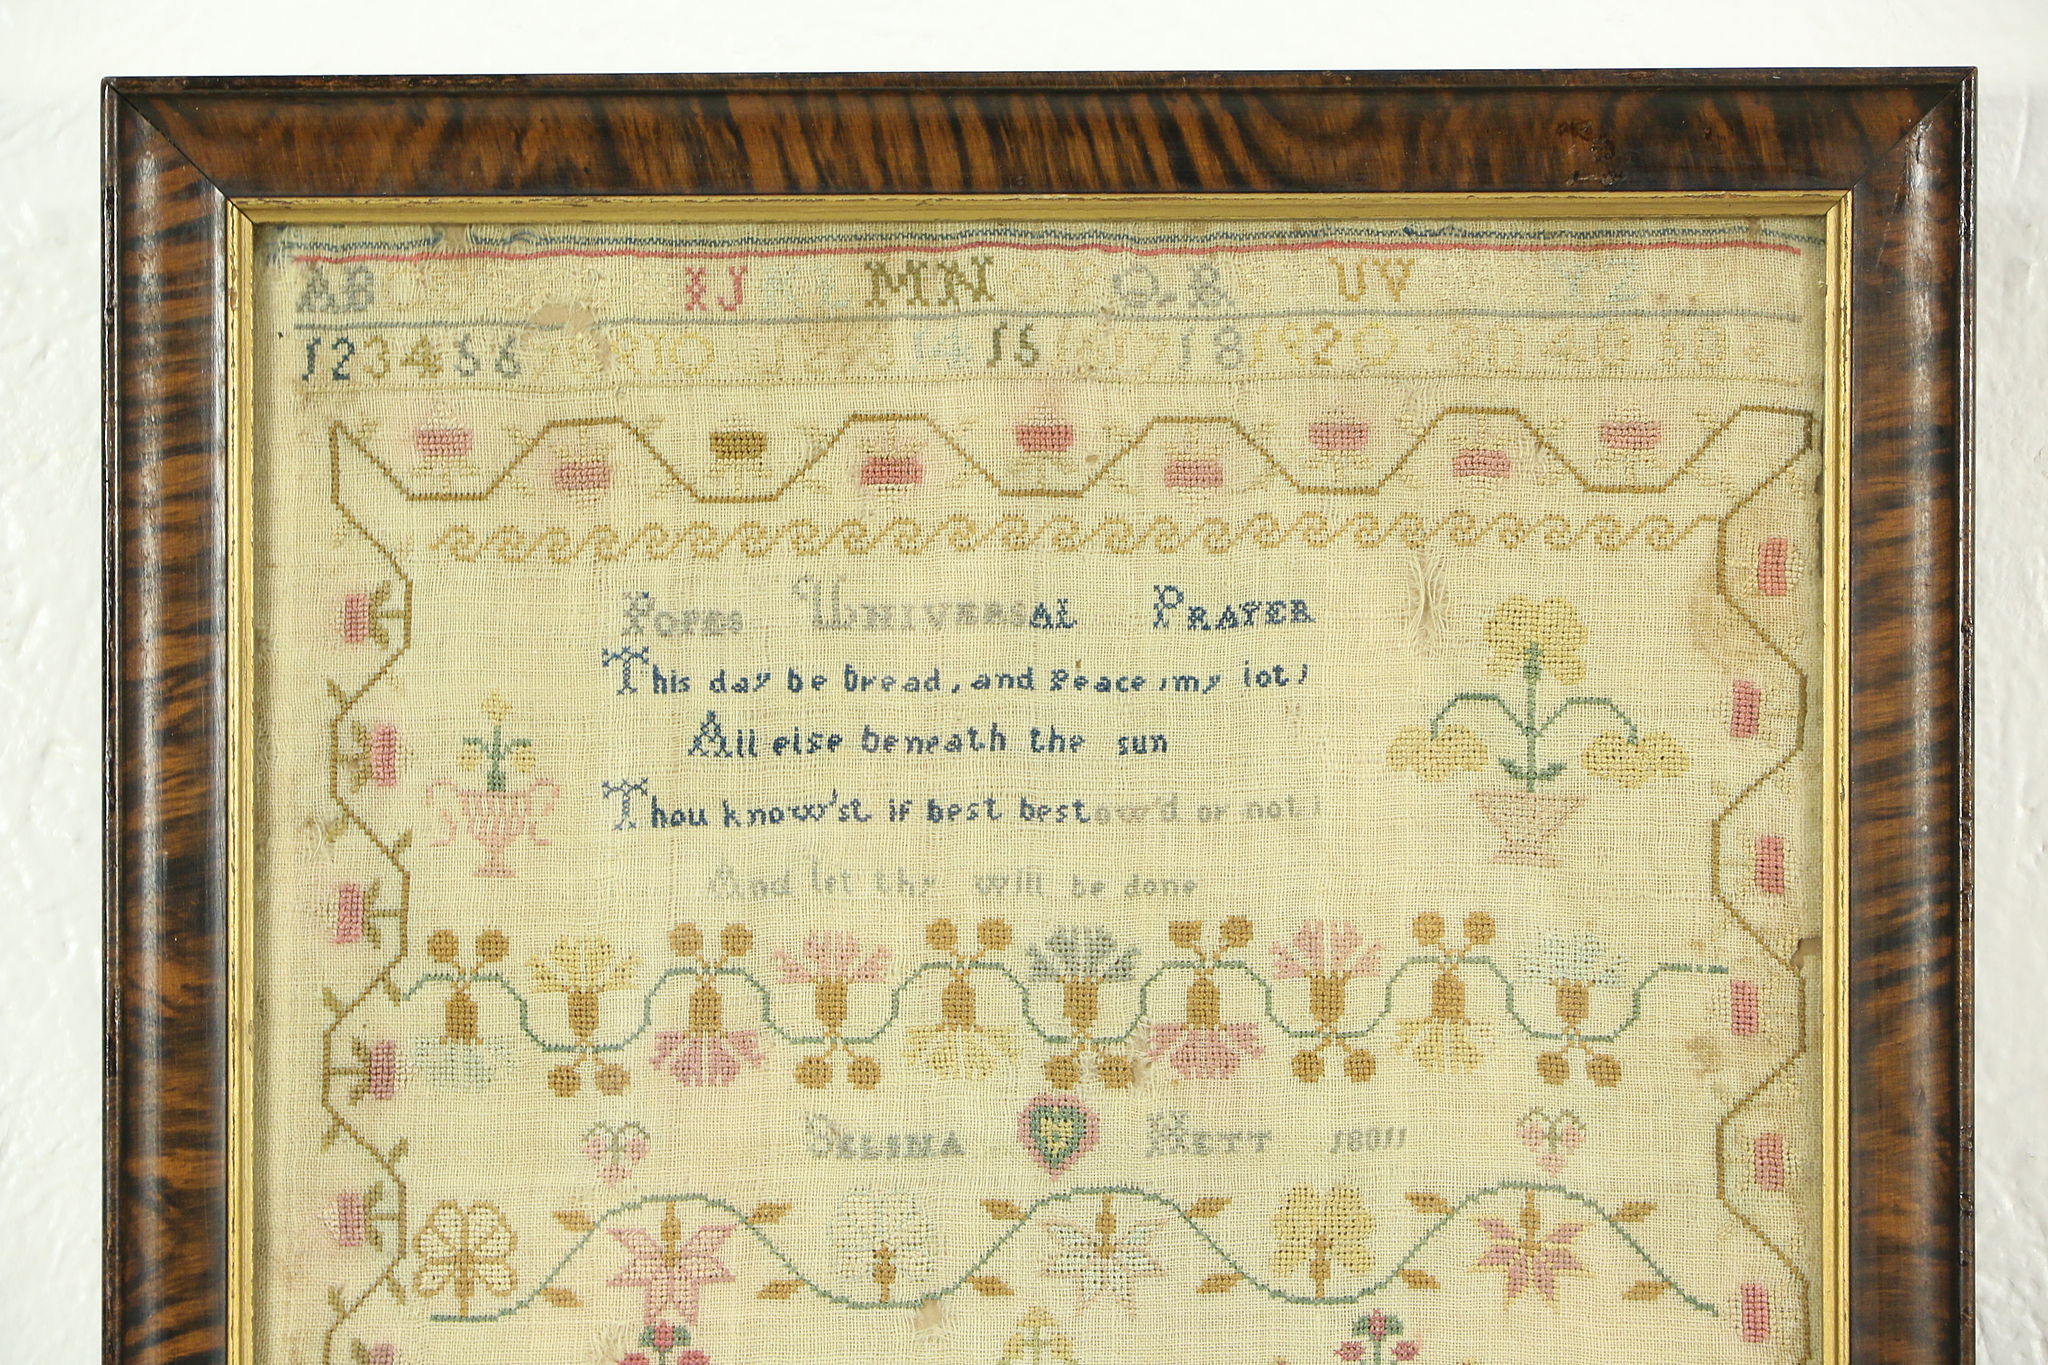 AB IJ KL MN O Q R UV YZ
1 2 3 4 5 6 9 10 14 15 17 18 19 20 30 40 50
Popes Universal Prayer
This day be bread, and Peace, my lot;
All else beneath the sun
Thou know'st if best bestow'd or not;
And let thy will be done
Selina Hett 1801